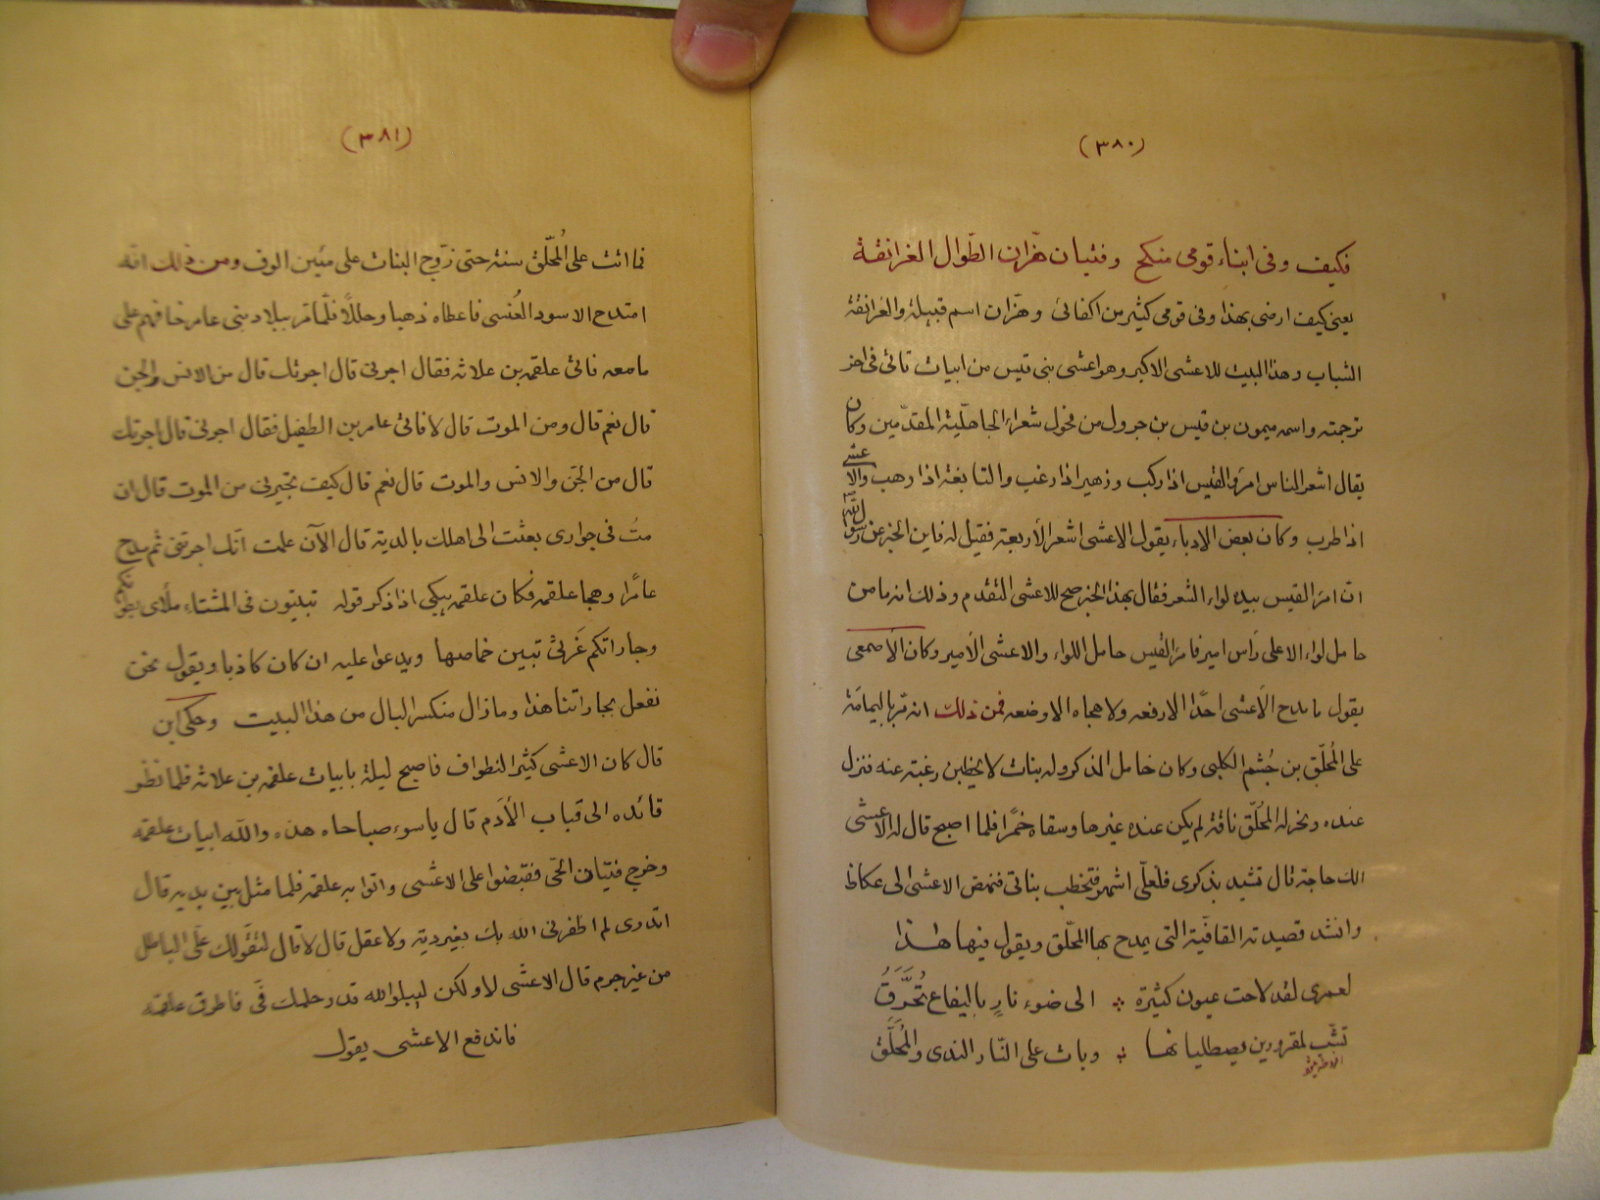 (٣٨٠)
فكيف وفى ابناء قومى منكح وفتيان هزّان الطّوال الغرانقة
يعنى كيف ارضى بهذا وفى قومى كثير من اكفائى وهزّان اسم قبيلة والغرانقة
الشباب وهذا البيت للاعشى الاكبر وهو اعشى بنى قيس من ابيات تاتى فى اخر
ترجمته واسمه ميمون بن قيس بن جرول من فحول شعراء الجاهليّة المقدّمين وكان
يقال اشعر الناس امرؤ القيس اذا ركب وزهير اذا رغب والنابغة اذا رهب والاعشى
اذا طرب وكان بعض الادباء يقول الاعشى اشعر الاربعة فقيل له فاين الخبر عن رسول الله
ان امرَ القيس بيده لواء الشعر فقال بهذا الخبر صح للاعشى التقدم وذلك انه ما من
حامل لواء الا على رَأس امير فامرَ القيس حامل اللواء والاعشى الأمير وكان الأصمعى
يقول ما مدح الأعشى احدًا الا رفعه ولا هجاه الا وضعه فمن ذلك انه مرّ باليمامة
على المُحلّق بن جُشم الكلبى وكان خامل الذكر وله بنات لا يخطبن رغبة عنه فنزل
عنده ونحر له المُحلّق ناقة لم يكن عنده غيرها وسقاه خمرًا فلما اصبح قال له الاعشى
الك حاجة قال تشيد بذكرى فلعلّى اشهر فتخطب بناتى فنهض الاعشى الى عكاظ
وانشد قصيدته القافيّة التى يمدح بها المحلّق ويقول فيها هذا
لعمرى لقد لاحت عيون كثيرة ؞ الى ضوء نارٍ باليفاع تُحَرَّقُ
تشّب لمقرورين يصطليانها ؞ وبات على النّار الندى والمُحَلَّق
(٣٨١)
فما اتت على المُحلّق سنة حتى زوّج البنات على مئين الوف ومن ذلك انّه
امتدح الاسود العُنسى فاعطاه ذهبا وحللًا فلمّا مرّ ببلاد بنى عامر خافهم على
ما معه فاتى علقمه بن علاثه فقال اجرنى قال اجرتك قال من الانس والجن
قال نعم قال ومن الموت قال لا فاتى عامر بن الطفيل فقال اجرنى قال اجرتك
قال من الجن والانس والموت قال نعم قال كيف تجيرنى من الموت قال ان
متُ فى جوارى بعثت الى اهلك بالدية قال الآن علمت انّك اجرتنى ثم مدح
عامرًا وهجا علقمه فكان علقمه يبكى اذا ذكر قوله تبيتون فى المشتاء ملأى بطونكم
وجاراتكم غَرثى تبين خماصها ويدعوا عليه ان كان كاذبا ويقول نحن
نفعل بجاراتنا هذا وما زال منكسر البال من هذا البيت وحكى ابن
قال كان الاعشى كثير التطواف فاصبح ليلة بابيات علقمه بن علاثه فلما نظر
قائده الى قباب الأدَم قال ياسوء صباحاه هذه والله ابيات علقمه
وخرج فتيان الحى فقبضوا على الاعشى واتوا به علقمه فلما مثل بين يديه قال
اتدرى لم اظفرنى الله بك بغير دية ولا عقل قال لا قال لتقولك علَى الباطل
من غير جرم قال الاعشى لا ولكن ليبلو الله قدر حلمك فَى فاطرق علقمه
فاندفع الاعشى يقول